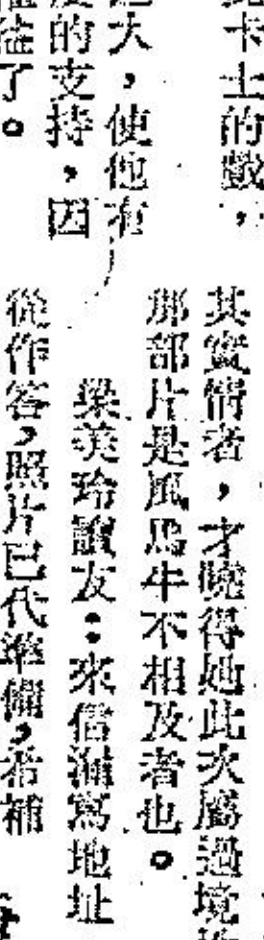 卡士的戲，
大，使他有
的支持，因
了。
其實情者，才曉得她此次屬過境
那部片是風馬牛不相及者也。
梁美玲讀友：來信漏寫地址
從作答，照片已代準備，希補